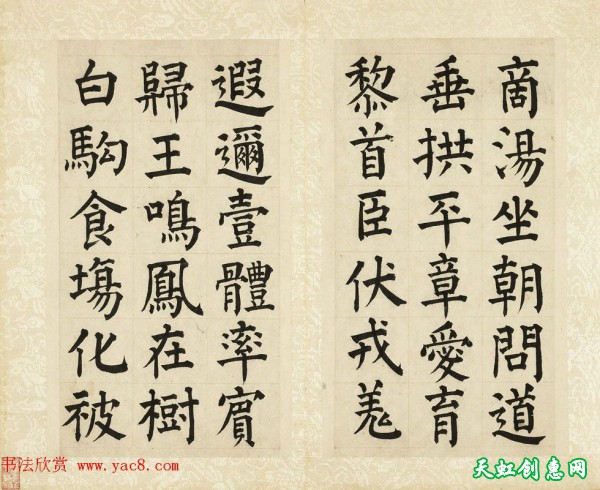 商湯坐朝問道
垂拱平章愛育
黎首臣伏戎羌
遐邇壹體率賓
歸王鳴鳳在樹
白駒食場化被
书法欣赏 www.yac8.com
天虹创惠网